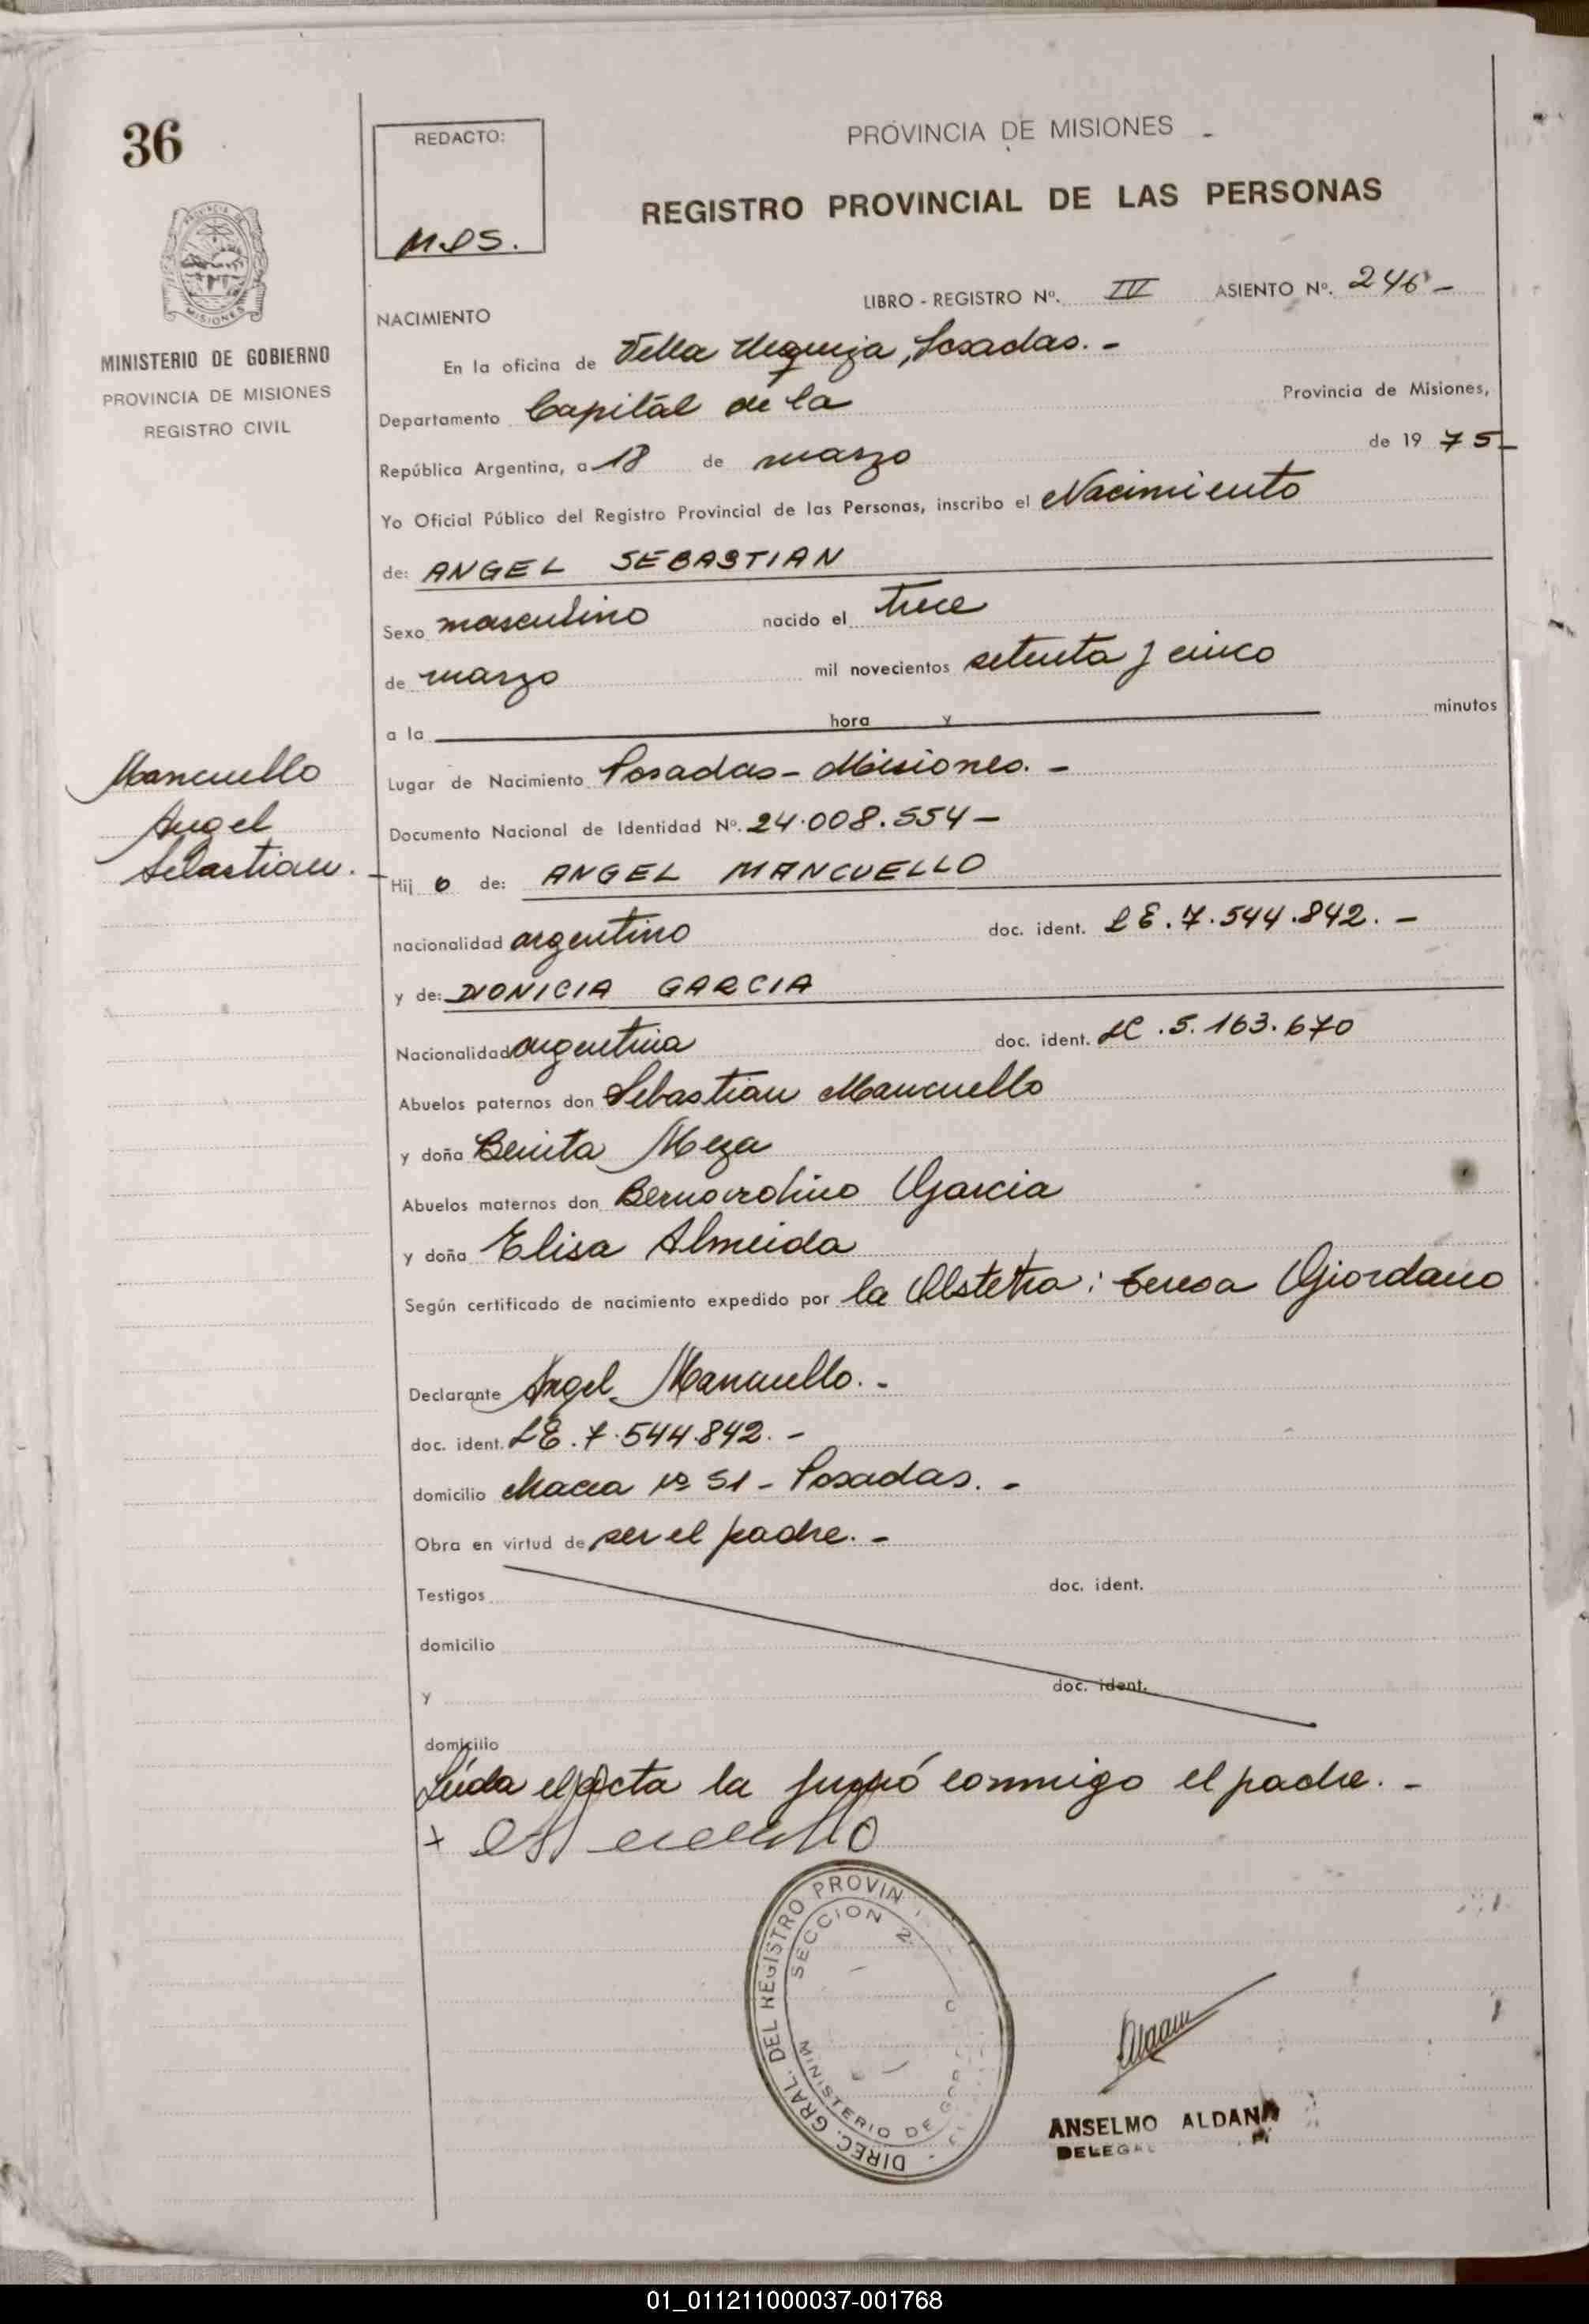 36
REDACTO:
M.D.S.
PROVINCIA DE MISIONES
REGISTRO PROVINCIAL DE LAS PERSONAS
PROVINCIA DE
MISIONES
MINISTERIO DE GOBIERNO
PROVINCIA DE MISIONES
REGISTRO CIVIL
LIBRO - REGISTRO Nº. IV ASIENTO Nº. 246 -
NACIMIENTO
En la oficina de Villa Urquiza, Posadas. -
Departamento Capital de la Provincia de Misiones,
República Argentina, a 18 de marzo de 19 75 -
Yo Oficial Público del Registro Provincial de las Personas, inscribo el Nacimiento
de: ANGEL SEBASTIAN
Sexo masculino nacido el trece
de marzo mil novecientos setenta y cinco
a la hora y minutos
Lugar de Nacimiento Posadas - Misiones. -
Documento Nacional de Identidad Nº. 24.008.554 -
Mancuello
Angel
Sebastian. -
Hij o de: ANGEL MANCUELLO
nacionalidad argentino doc. ident. LE. 7.544.842. -
y de: DIONICIA GARCIA
Nacionalidad argentina doc. ident. LC. 5.163.670
Abuelos paternos don Sebastian Mancuello
y doña Benita Meza
Abuelos maternos don Bernardino Garcia
y doña Elisa Almeida
Según certificado de nacimiento expedido por la Obstetra: Teresa Giordano
Declarante Angel Mancuello. -
doc. ident. LE. 7.544.842. -
domicilio Chacra Nº 51 - Posadas. -
Obra en virtud de ser el padre. -
Testigos doc. ident.
domicilio
y doc. ident.
domicilio
Leida el acta la firmó conmigo el padre. -
+
DIREC. GRAL. DEL REGISTRO PROVIN
SECCION 2
MINISTERIO DE
ANSELMO ALDANA
DELEGA
01_011211000037-001768